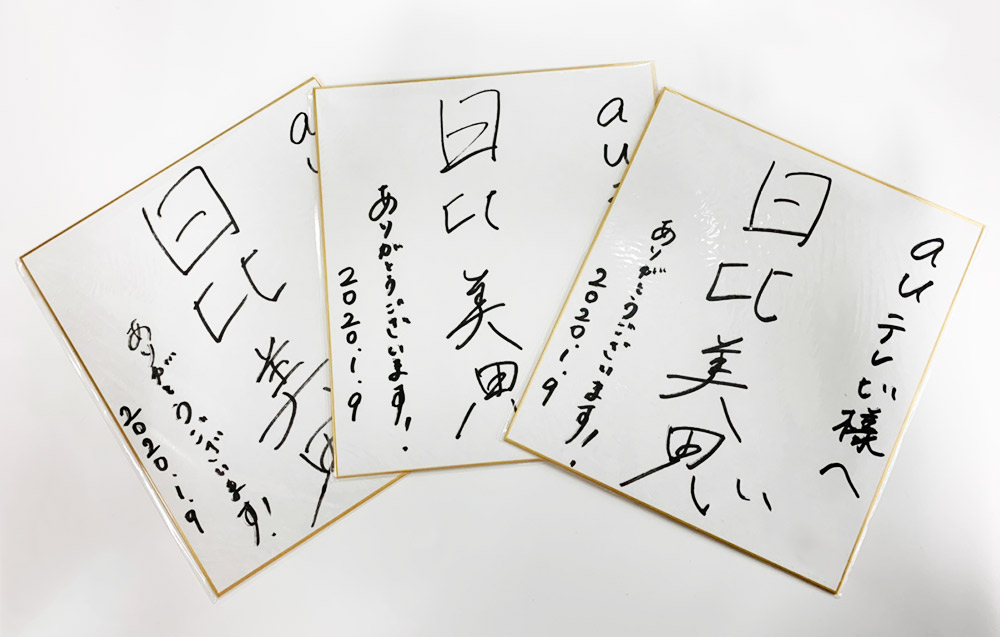 a
日比美思
ありがとうございます!
2020.1.9
au
日比美思
ありがとうございます!
2020.1.9
auテレビ様へ
日比美思
ありがとうございます!
2020.1.9